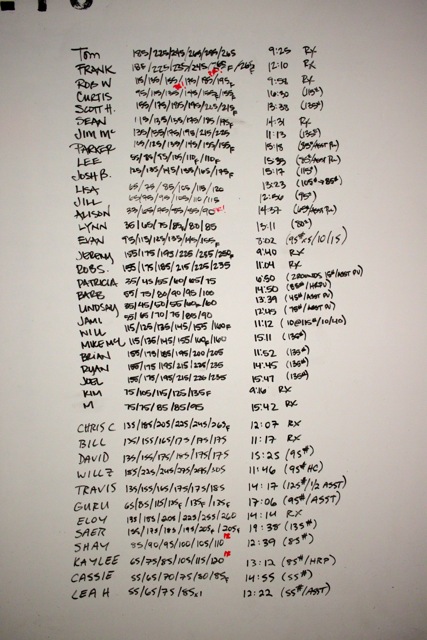 TOM 185/225/245/265/255/265 9:25 RX
FRANK 185/225/255/245/265F/265F 12:10 RX
ROB W 115/135/155/175/185/195F 9:58 RX
CURTIS 95/115/135/145/155F/155F 16:30 (115#)
SCOTT H. 155/175/185/195/205/215F 13:38 (135#)
SEAN 115/135/155/175/185/195F 14:31 RX
JIM MC 135/155/175/195/215/225 11:13 (135#)
PARKER 15:18
LEE 55/85/95/105/110F/110F 15:35
JOSH B. 125/135/145/155/165/175F 15:17 (115#)
LISA 65/75/85/105/115/120 13:23 (105#→85#)
JILL 65/75/95/105/110/115 12:56 (95#)
ALISON 14:37
LYNN 35/65/75/85F/80/85 13:11 (80#)
EVAN 95/115/125/135/145/155F
JEREMY 155/175/195/225/255/255F 9:40 RX
ROB S. 155/175/185/215/225/235 11:04 RX
PATRICIA 35/45/55/60/65/75 (2 ROUNDS
BARB 55/75/80/90/95/100 14:50
LINDSAY 35/45/50/55/60F/60 13:39
JAMI 55/65/70/75/85/90 12:45
WILL 115/125/135/145/155/160F 11:12
MIKE MC 115/135/145/155/160F/160 15:11 (135#)
BRIAN 155/175/185/195/200/205 11:52 (135#)
RYAN 155/175/195/215/225/235 14:45 (135#)
JOEL 155/175/195/215/225/235 15:47 (135#)
KIM 75/105/115/125/135F 9:16 RX
M 75/75/85/85/95 15:42 RX
CHRIS C 135/185/205/225/245/265F 12:07 RX
BILL 135/155/165/175/175/175 11:17 RX
DAVID 135/155/175/185/175/175 15:25 (95#)
WILL Z 185/225/245/275/295/305 11:46 (95# HC)
TRAVIS 135/155/165/175/175/185 14:17 (125#/1/2 ASST)
GURU 65/85/115/135F/135F/135F 17:06 (95#/ASST)
ELOY 135/185/205/225/255/260 14:14 RX
SAER 155/175/185/195/205F/205F 19:38 (135#)
SHAY 85/90/95/100/105/110 PR 12:39 (83#)
KAYLEE 65/75/85/105/115/120 PR 13:12 (85#/HRP)
CASSIE 55/65/70/75/80/85F 14:55 (55#)
LEAH 55/65/75/85x1 12:22 (55#/ASST)